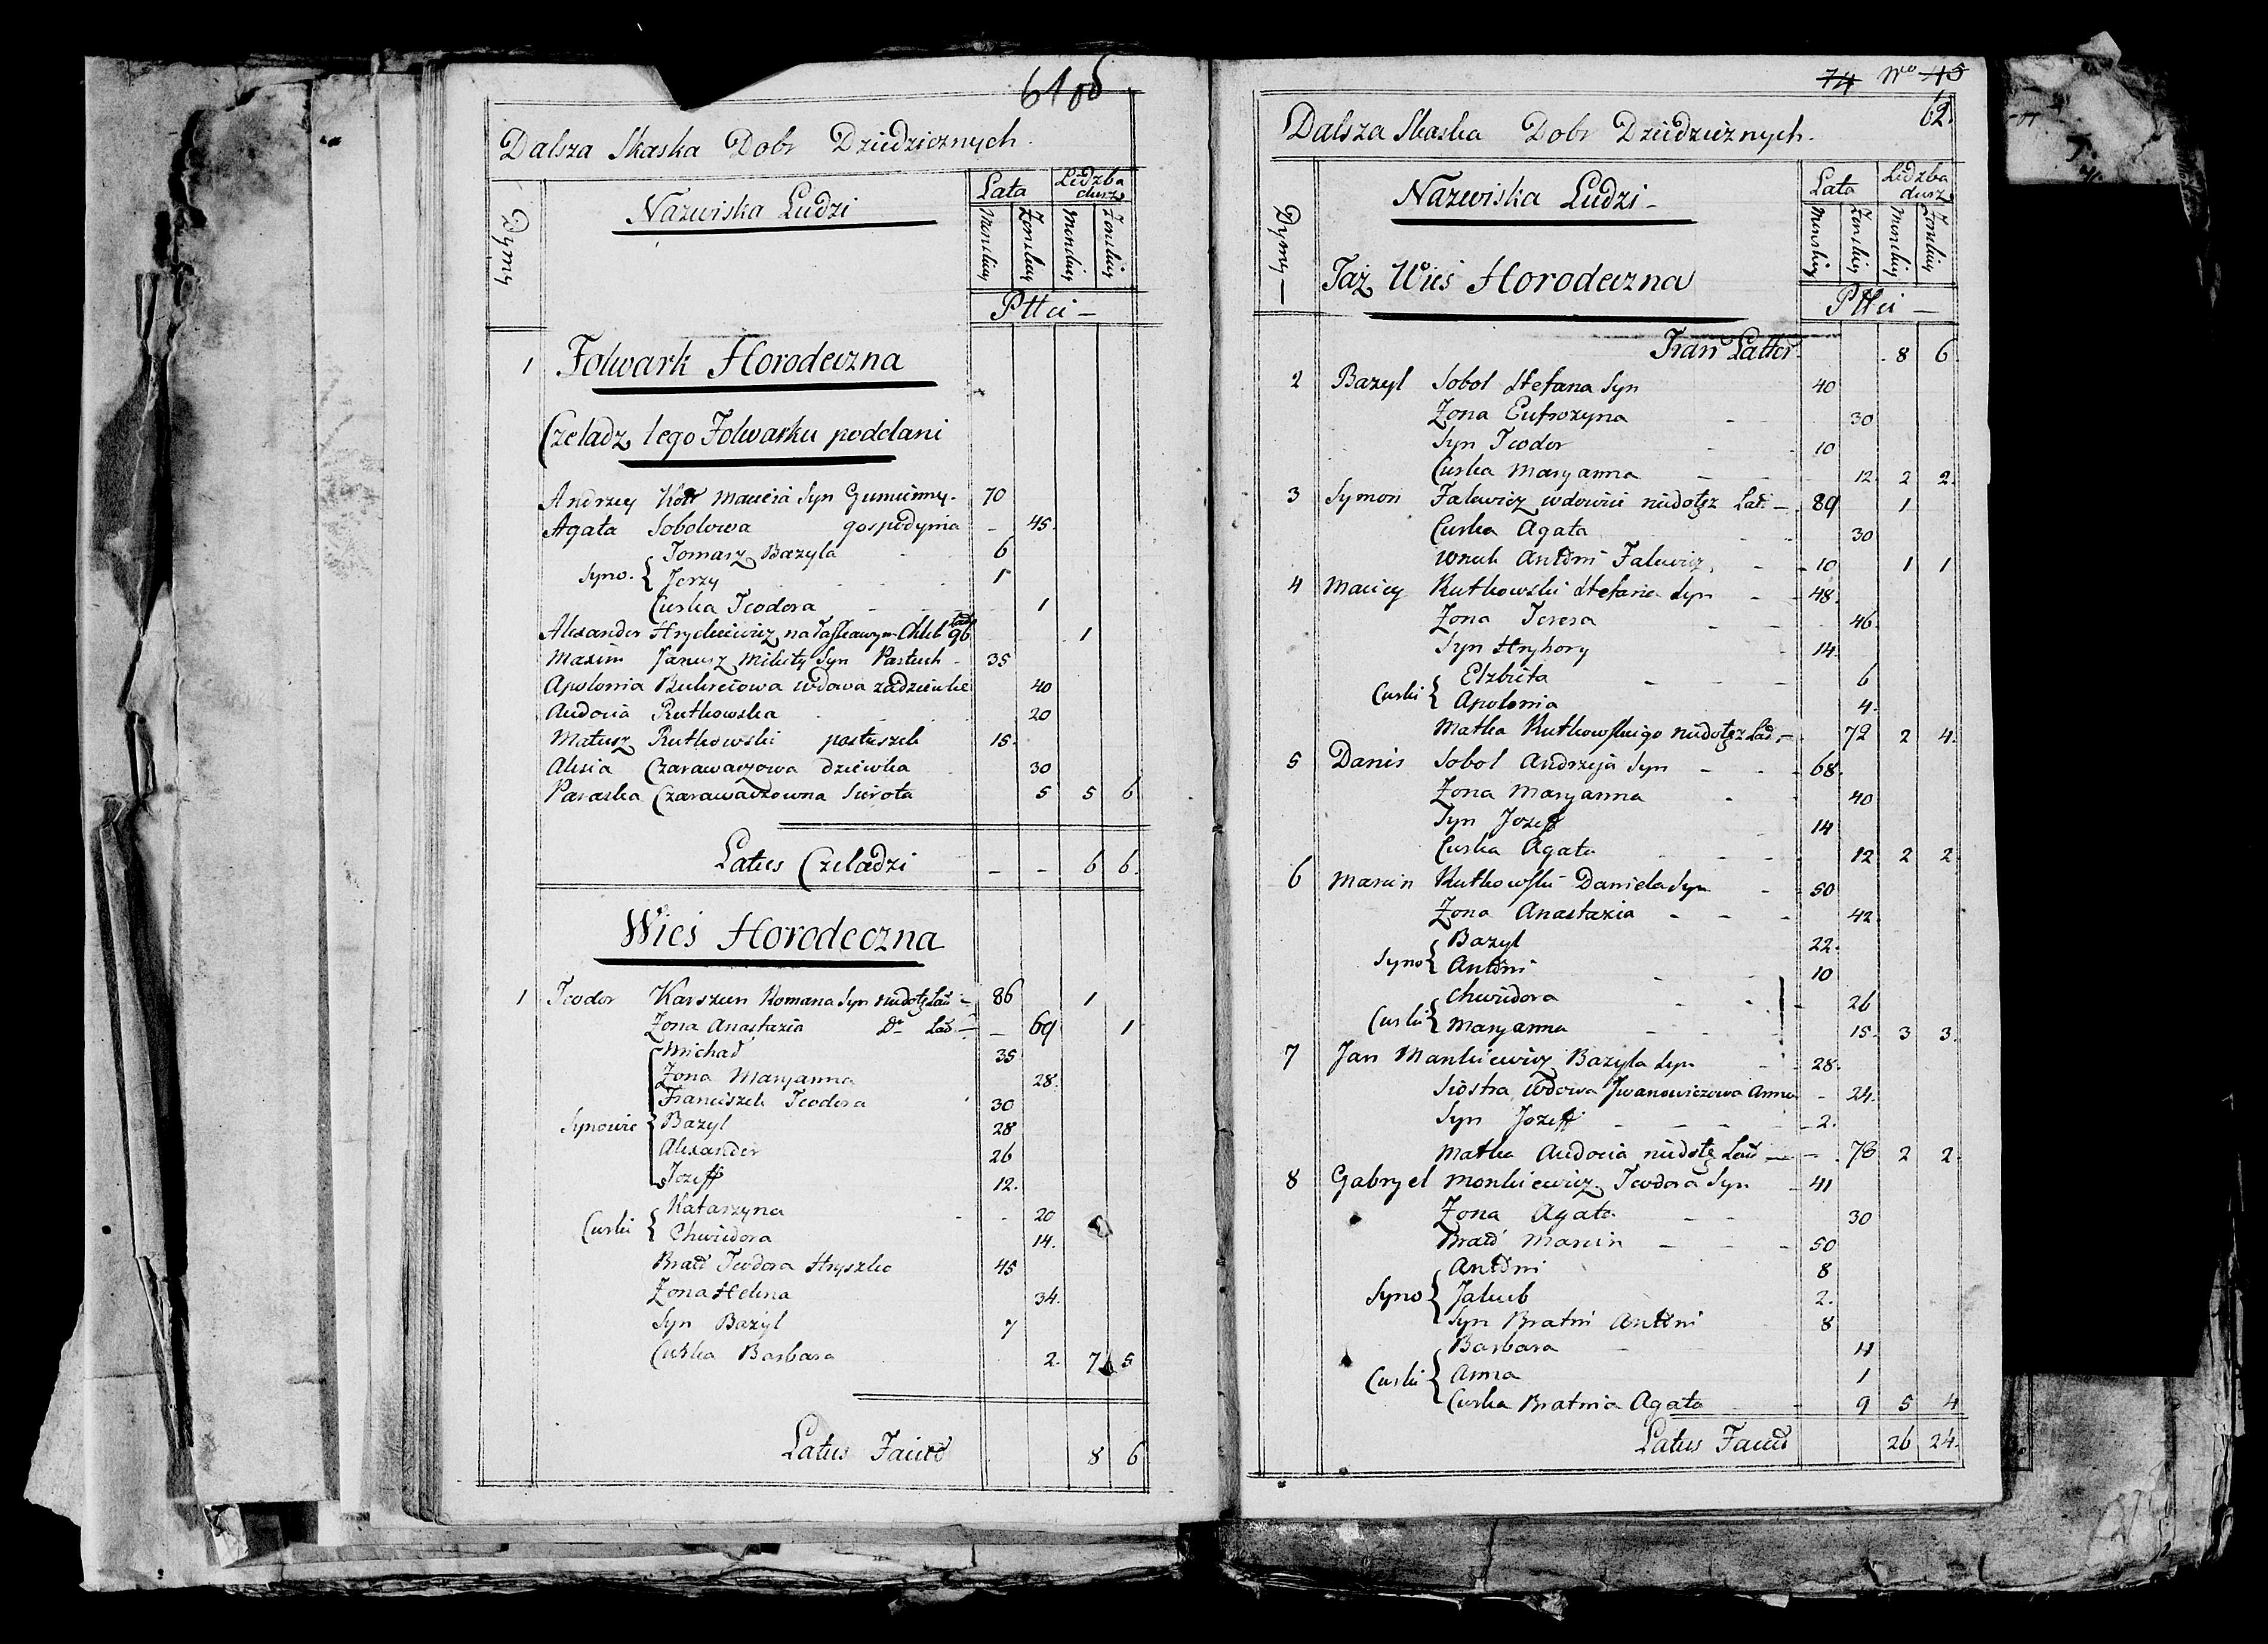 61 об
Dalsza Skaska Dobr Dziedzicznych.
Dymy
Nazwiska Ludzi
Lata
Liczba dusz
Męnskiey
Żenskiey
Męnskiey
Żenskiey
Płłci –
1 Folwark Horodeczna
Czeladz tego Folwarku poddani
Andrzey Kott Macieia Syn Gumienny - 70
Agata Sobolowa gospodynia - 45.
Syno. { Tomasz Bazyla 6
Jerzy 1
Curka Teodora 1
Alexander Hryckiewicz na Łaskawym Chleb lad 96 1
Maxim Janusz Mikity Syn Pastuch - 35
Apolonia wdowa 40
Audocia Rutkowska 20
Mateusz Rutkowski pastuszek 15.
Alesia Czarawaczowa dziewka 30
Paraska Czarawaczowna Sierota 5 5 6
Latus Czeladzi - - 6 6.
Wieś Horodeczna
1 Teodor Karszun Romana Syn niedołę Lad - 86 1
Żona Anastazia Do Lad - - 69 1
Synowie { Michał 35
Żona Maryanna 28.
Franciszek Teodora 30
Bazyl 28
Alexander 26
Jozeff 12.
Curki { Katarzyna - 20
Chwiedora 14.
Brat Teodora Hryszko 45
Żona Helena 34.
Syn Bazyl 7
Curka Barbara 2. 7 5
Latus Facit 8 6
74 No 45
62.
Dalsza Skaska Dobr Dziedzicznych.
Dymy –
Nazwiska Ludzi –
Lata
Liczba dusz
Męnskiey
Żenskiey
Męnskiey
Żenskiey
Płłci –
Taż Wieś Horodeczna
Tran Latter 8 6
2 Bazyl Sobol Stefana Syn 40
Żona Eufrozyna - 30
Syn Teodor - 10
Curka Maryanna - 12. 2 2.
3 Symon Falewicz wdowiec niedołęz Lat. - 89 1
Curka Agata 30
Wnuk Antoni Falewicz, - 10 1 1
4 Maciey Rutkowski Stefana Syn - 48.
Żona Teresa - 46.
Syn Hryhory - 14.
Curki { Elzbieta - - - 6
Apolonia 4.
Matka Rutkowskiego niedołęz Lad - 72 2 4.
5 Danis Sobol Andrzeja Syn - - 68.
Żona Maryanna - 40
Syn Jozeff 14
Curka Agata - - 12 2 2
6 Marcin Rutkowski Daniela Syn - 50
Żona Anastazia - - - 42.
Syno { Bazyl 22.
Antoni - 10
Curki { Chwiedora - - 26
Maryanna - - 15. 3 3.
7 Jan Mankiewicz Bazyla Syn - 28.
Siostra wdowa Jwanowiczowa Anna - 24.
Syn Jozeff - - - - 2.
Matka Audocia niedołę Lad - - 78 2 2
8 Gabryel Monkiewicz Teodora Syn - 41
Żona Agata - - 30
Brat Marcin - - - 50
Syno { Antoni 8
Jakub 2.
Syn Bratni Antoni 8
Curki { Barbara - - 4
Anna 1
Curka Bratnia Agata - 9 5 4
Latus Facit 26 24.